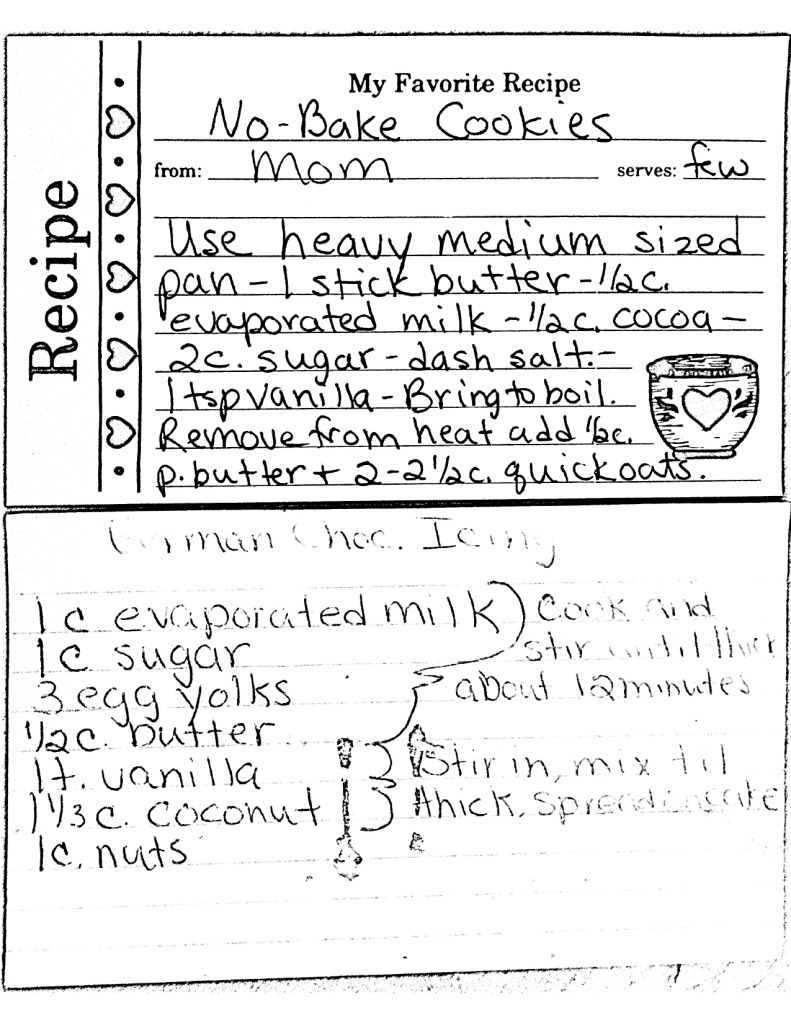 Recipe
My Favorite Recipe
No-Bake Cookies
from: Mom serves: few
Use heavy medium sized
pan - 1 stick butter - 1/2 c.
evaporated milk - 1/2 c. cocoa -
2c. sugar - dash salt. -
1 tsp vanilla - Bring to boil.
Remove from heat add 1/2c.
p. butter + 2-2 1/2 c. quick oats.
German Choc. Icing
1 c evaporated milk
1c sugar
3 egg yolks
1/2 c. butter
1 t. vanilla
1 1/3 c. coconut
1c. nuts
Cook and
stir until thick
about 12 minutes
Stir in, mix til
thick. Spread on cake